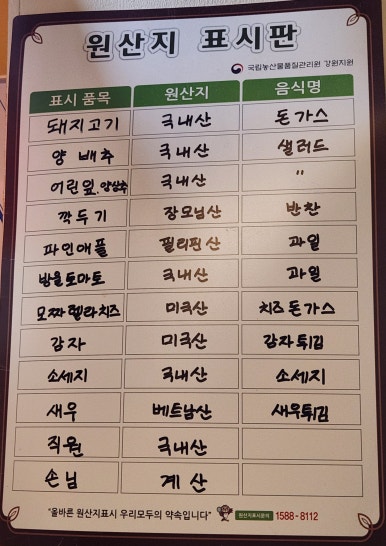 원산지 표시판
국립농산물품질관리원 강원지원
표시 품목 원산지 음식명
돼지고기 국내산 돈가스
양배추 국내산 샐러드
어린잎.양상추 국내산 〃
깍두기 장모님산 반찬
파인애플 필리핀산 과일
방울토마토 국내산 과일
모짜렐라치즈 미국산 치즈돈가스
감자 미국산 감자튀김
소세지 국내산 소세지
새우 베트남산 새우튀김
직원 국내산
손님 계산
"올바른 원산지표시 우리모두의 약속입니다" 원산지표시문의 1588-8112